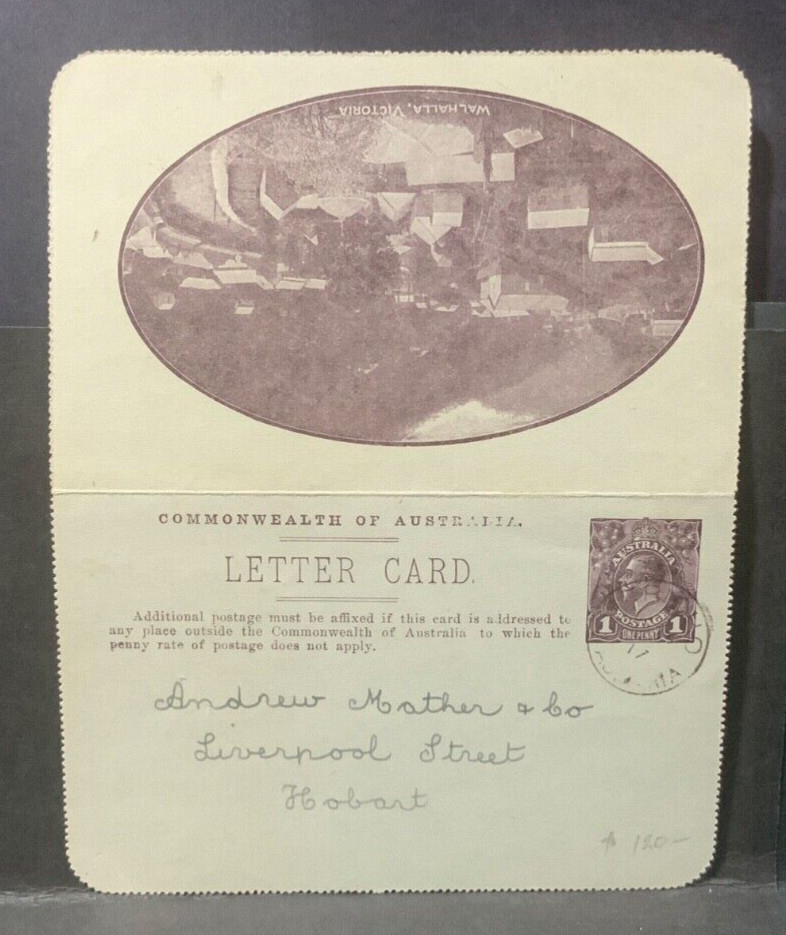 WALHALLA, VICTORIA
COMMONWEALTH OF AUSTRALIA.
LETTER CARD.
Additional postage must be affixed if this card is addressed to
any place outside the Commonwealth of Australia to which the
penny rate of postage does not apply.
AUSTRALIA
POSTAGE
1 ONE PENNY 1
17
Andrew Mather & Co
Liverpool Street
Hobart
$ 120-